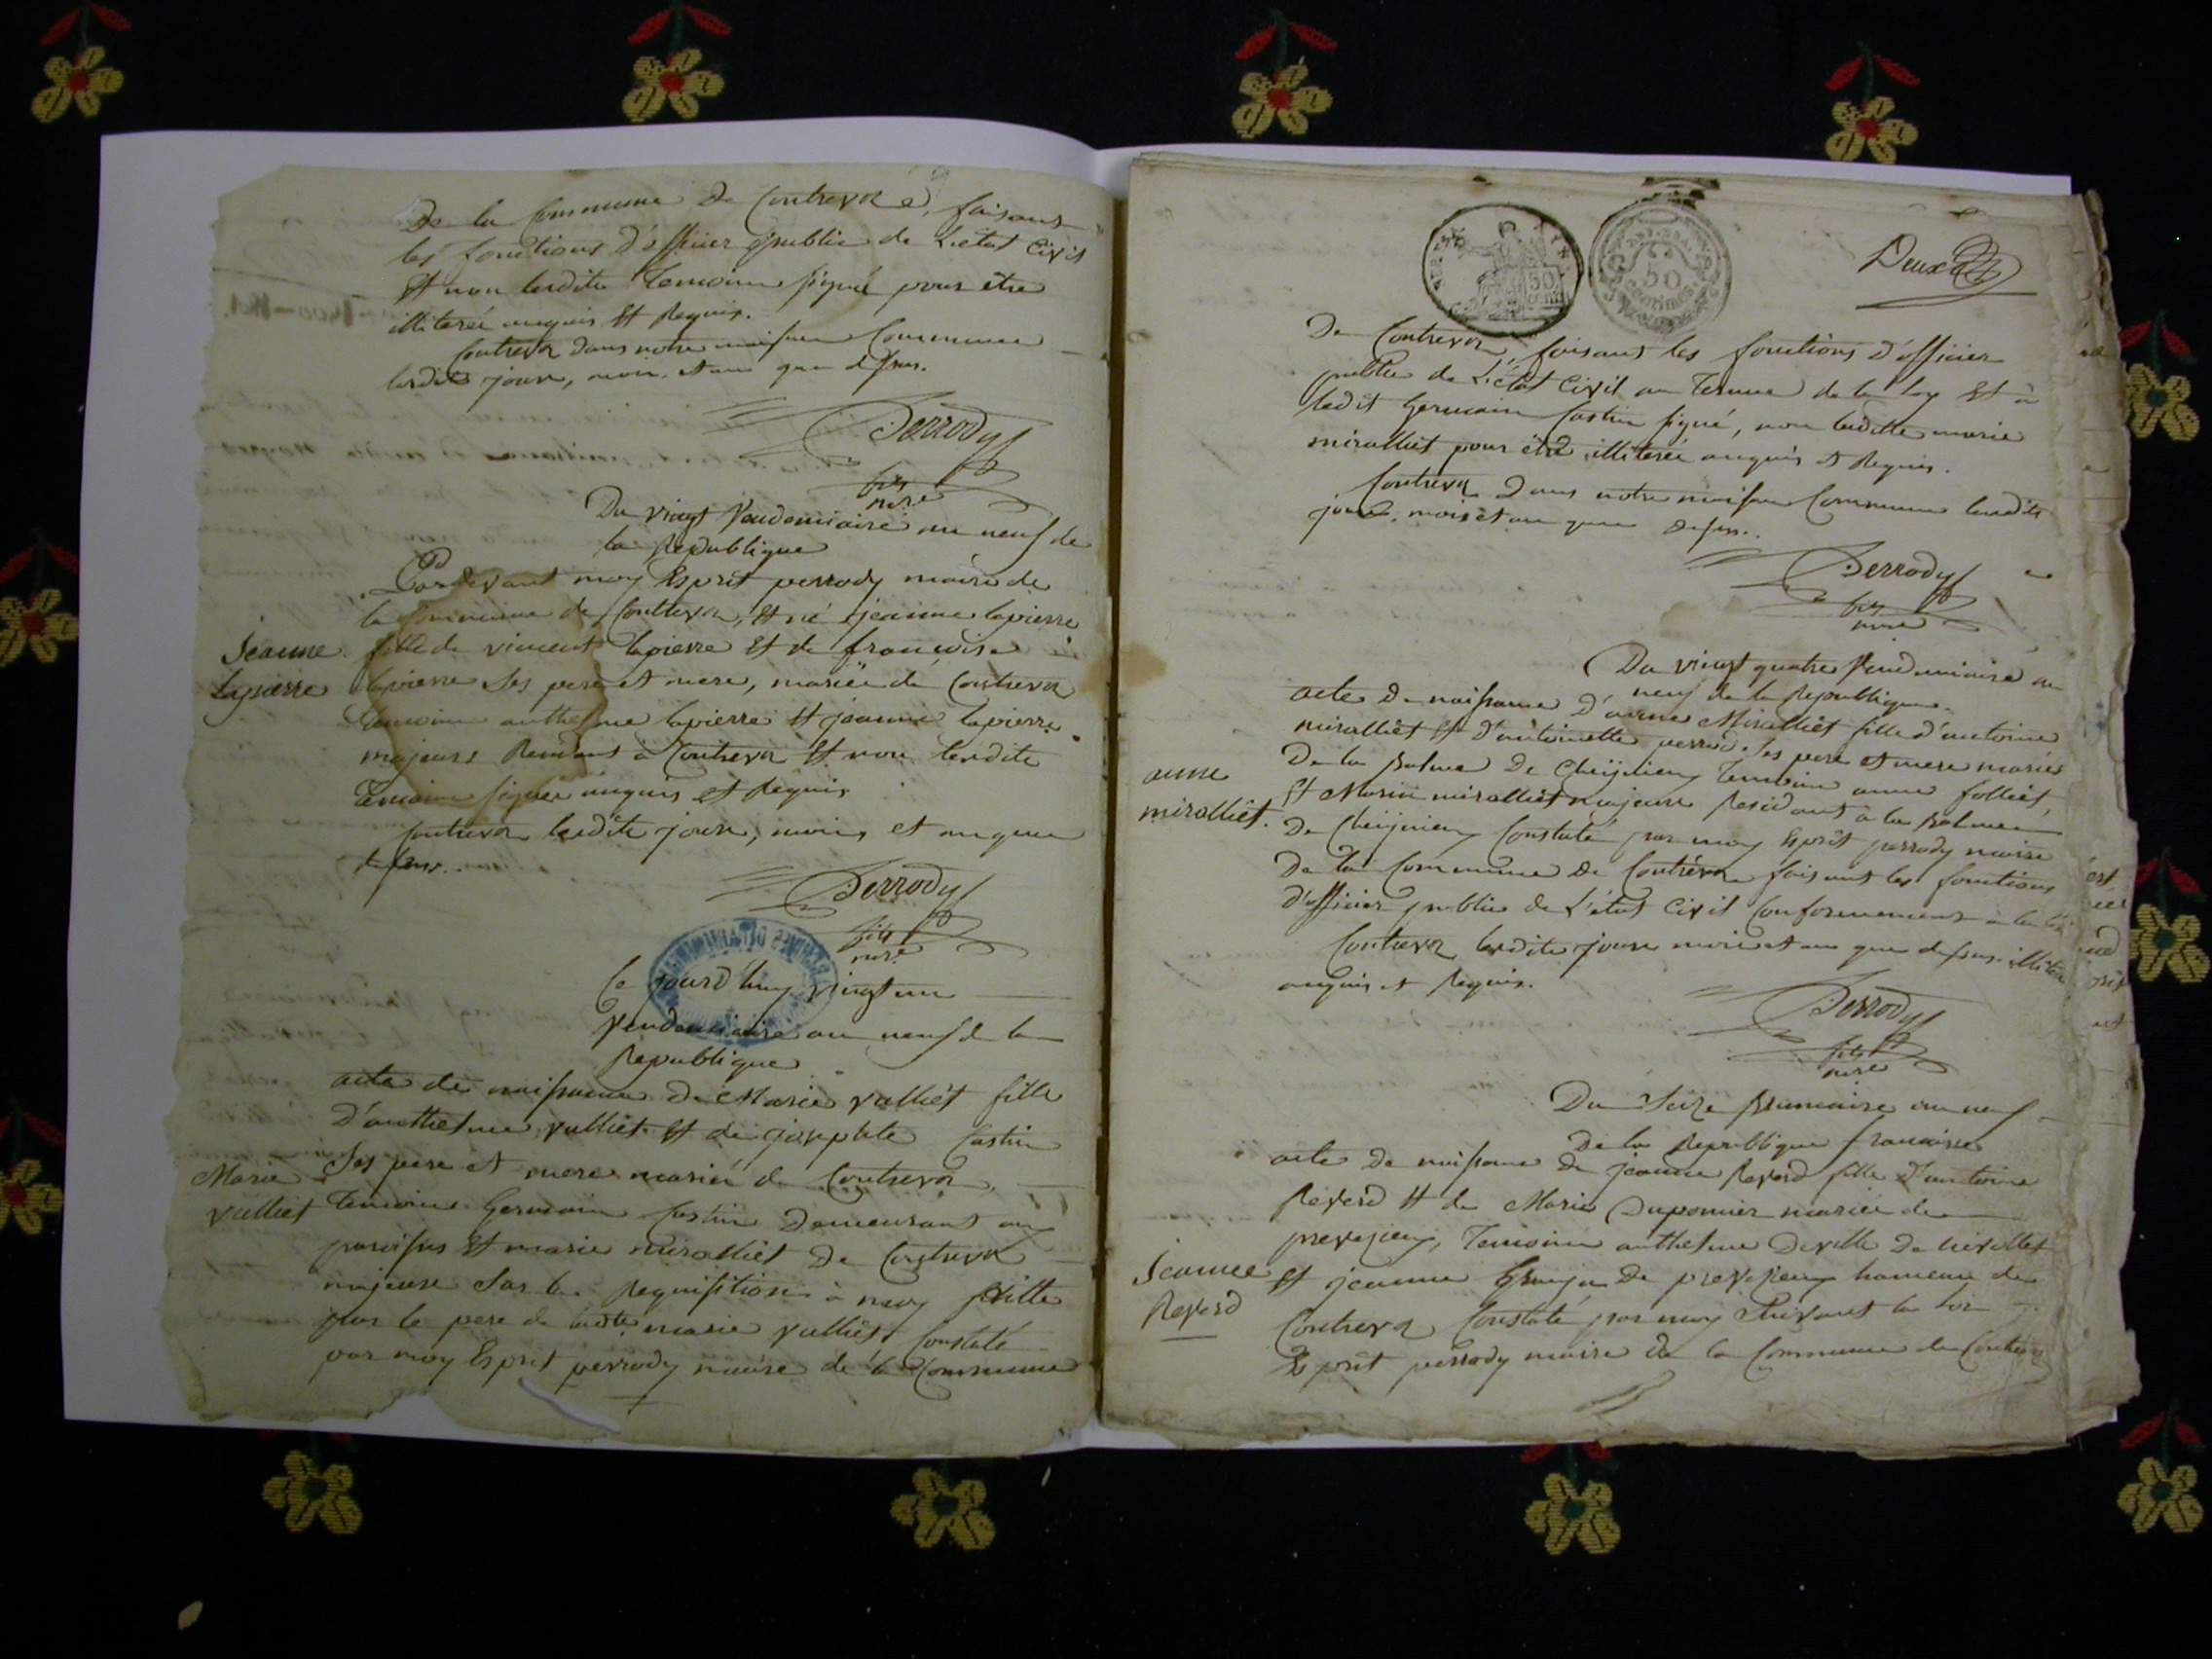 De la Commune de Contrevoz, faisant
les fonctions d'officier public de L'état Civil
Et non lesdits Temoins signé pour être
illiterée enquis Et Requis.
Contrevoz dans notre maison Commune
lesdits jour, mois et an que dessus.
Perrody
mre
Du vingt Vendemiaire an neuf de
la Republique
Pardevant moy Esprit perrody maire de
la Commune de Contrevoz, Est né jeanne lapierre
Jeanne
lapierre
fille de vincent lapierre Et de françoise
lapierre Ses pere et mere, mariée de Contrevoz
Temoins anthelme lapierre Et jeanne lapierre
majeurs Residents à Contrevoz Et non lesdits
Temoins signée enquis et Requis
Contrevoz lesdits jour, mois et an que
dessus.
Perrody
mre
Ce jourd'huy vingt un
Vendemiaire an neuf de la
Republique
acte de naissance de Marie Vulliet fille
D'anthelme vulliet Et de josephte Castin
Marie
Vulliet
Ses pere et mere mariée de Contrevoz,
Temoins Germain Castin Demeurant au
paroisses Et marie miralliet De Contrevoz
majeurs Sur la Requisition à moy faitte
par le pere de ladte marie vulliet, Constaté
par moy Esprit perrody maire de la Commune
50
50
centimes
Deux
De Contrevoz, faisant les fonctions d'officier
public de L'état Civil au Terme de la loy Et à
ledit Germain Castin signé, non laditte marie
miralliet pour être illiterée enquis et Requis.
Contrevoz Dans notre maison Commune lesdits
jour, mois et an que dessus.
Perrody
mre
Du vingt quatre Vendemiaire an
neuf de la Republique
acte De naissance D'anne Miralliet fille d'antoine
miralliet Et d'antoinette Ses pere et mere mariés
De la Balme De Cheignieu Temoins anne folliet
anne
miralliet.
Et Marie miralliet majeurs Residants à la Balme
De Cheignieu Constaté par moy Esprit perrody maire
De la Commune De Contrevoz faisant les fonctions
d'officier public de L'état Civil Conformement à la loi
Contrevoz lesdits jour mois et an que dessus illiteré
enquis et Requis.
Perrody
mre
Du Seize Brumaire an neuf
De la Republique francaise
acte De naissance De jeanne Reverd fille D'antoine
Reverd Et de Marie Duponier mariée de
prevezieu, Temoins anthelme Deville De
Jeanne
Reverd
Et jeanne De prevezieu hameau de
Contrevoz Constaté par moy Suivant la loi
Esprit perrody maire De la Commune de Contrevoz